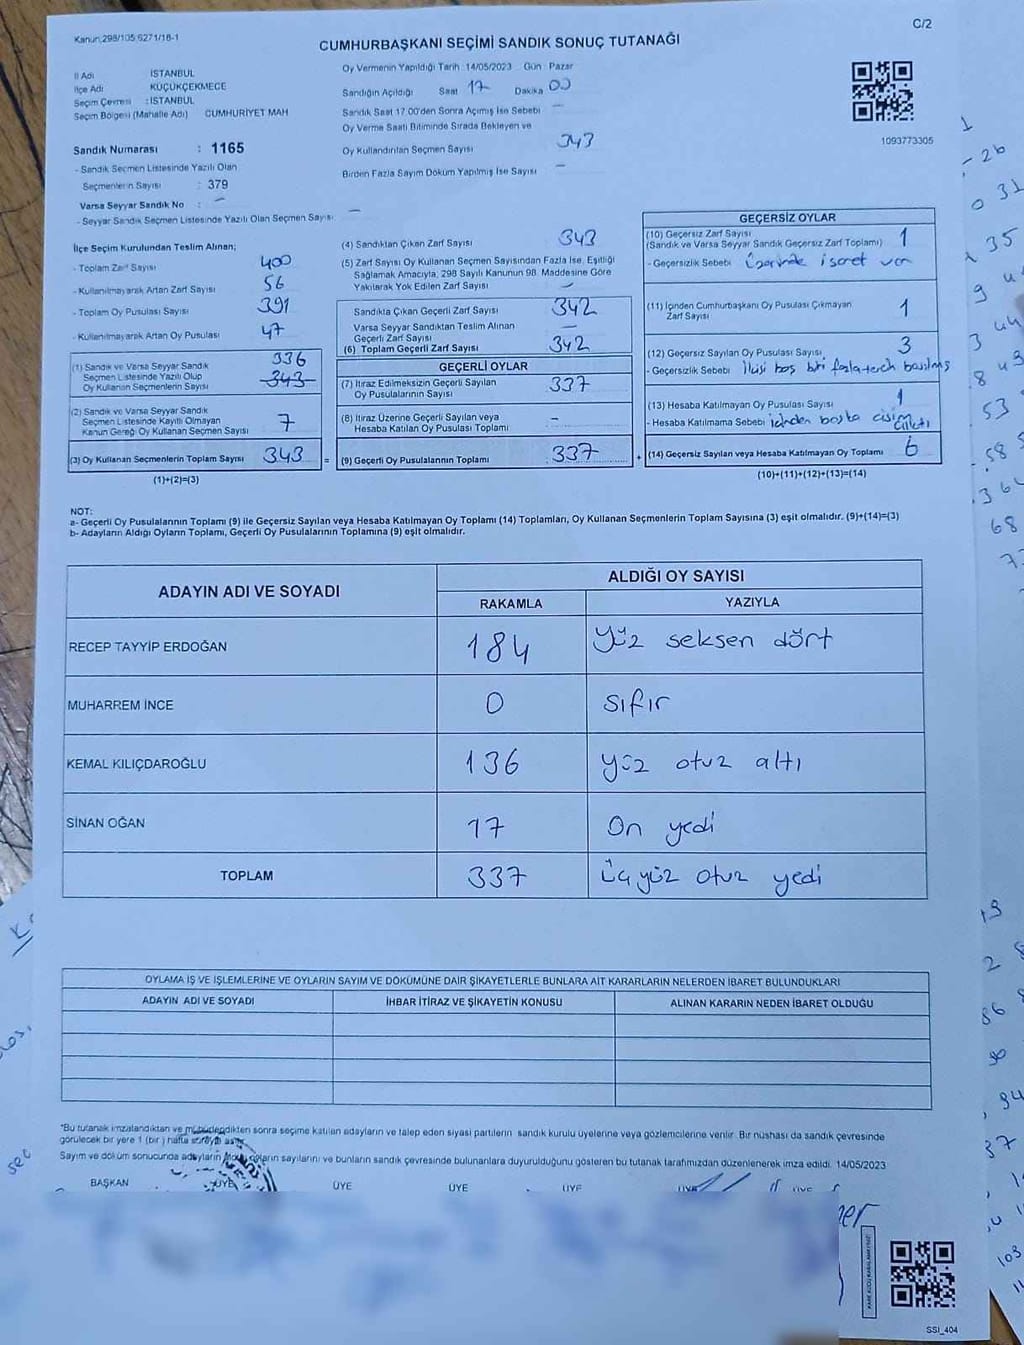 Kanun 298/105 6271/18-1
C/2
CUMHURBAŞKANI SEÇİMİ SANDIK SONUÇ TUTANAĞI
İl Adı İSTANBUL
İlçe Adı KÜÇÜKÇEKMECE
Seçim Çevresi : İSTANBUL
Seçim Bölgesi (Mahalle Adı) CUMHURİYET MAH
Sandık Numarası : 1165
- Sandık Seçmen Listesinde Yazılı Olan
Seçmenlerin Sayısı : 379
Varsa Seyyar Sandık No : –
- Seyyar Sandık Seçmen Listesinde Yazılı Olan Seçmen Sayısı –
Oy Vermenin Yapıldığı Tarih : 14/05/2023 Gün : Pazar
Sandığın Açıldığı Saat 17 Dakika 00
Sandık Saat 17.00'den Sonra Açılmış İse Sebebi –
Oy Verme Saati Bitiminde Sırada Bekleyen ve
Oy Kullandırılan Seçmen Sayısı 343
Birden Fazla Sayım Döküm Yapılmış İse Sayısı –
1093773305
İlçe Seçim Kurulundan Teslim Alınan;
- Toplam Zarf Sayısı 400
- Kullanılmayarak Artan Zarf Sayısı 56
- Toplam Oy Pusulası Sayısı 391
- Kullanılmayarak Artan Oy Pusulası 47
(1) Sandık ve Varsa Seyyar Sandık
Seçmen Listesinde Yazılı Olup
Oy Kullanan Seçmenlerin Sayısı 336 343
(2) Sandık ve Varsa Seyyar Sandık
Seçmen Listesinde Kayıtlı Olmayan
Kanun Gereği Oy Kullanan Seçmen Sayısı 7
(3) Oy Kullanan Seçmenlerin Toplam Sayısı 343 =
(1)+(2)=(3)
(4) Sandıktan Çıkan Zarf Sayısı 343
(5) Zarf Sayısı Oy Kullanan Seçmen Sayısından Fazla İse, Eşitliği
Sağlamak Amacıyla, 298 Sayılı Kanunun 98. Maddesine Göre
Yakılarak Yok Edilen Zarf Sayısı –
Sandıkta Çıkan Geçerli Zarf Sayısı 342
Varsa Seyyar Sandıktan Teslim Alınan
Geçerli Zarf Sayısı –
(6) Toplam Geçerli Zarf Sayısı 342
GEÇERLİ OYLAR
(7) İtiraz Edilmeksizin Geçerli Sayılan
Oy Pusulalarının Sayısı 337
(8) İtiraz Üzerine Geçerli Sayılan veya
Hesaba Katılan Oy Pusulası Toplamı –
(9) Geçerli Oy Pusulalarının Toplamı : 337 +
GEÇERSİZ OYLAR
(10) Geçersiz Zarf Sayısı
(Sandık ve Varsa Seyyar Sandık Geçersiz Zarf Toplamı) 1
- Geçersizlik Sebebi üzerinde işaret var
(11) İçinden Cumhurbaşkanı Oy Pusulası Çıkmayan
Zarf Sayısı 1
(12) Geçersiz Sayılan Oy Pusulası Sayısı 3
- Geçersizlik Sebebi ikisi boş biri fazla tercih basılmış
(13) Hesaba Katılmayan Oy Pusulası Sayısı 1
- Hesaba Katılmama Sebebi içinden başka cisim çıktı
(14) Geçersiz Sayılan veya Hesaba Katılmayan Oy Toplamı 6
(10)+(11)+(12)+(13)=(14)
NOT:
a- Geçerli Oy Pusulalarının Toplamı (9) ile Geçersiz Sayılan veya Hesaba Katılmayan Oy Toplamı (14) Toplamları, Oy Kullanan Seçmenlerin Toplam Sayısına (3) eşit olmalıdır. (9)+(14)=(3)
b- Adayların Aldığı Oyların Toplamı, Geçerli Oy Pusulalarının Toplamına (9) eşit olmalıdır.
ADAYIN ADI VE SOYADI
ALDIĞI OY SAYISI
RAKAMLA YAZIYLA
RECEP TAYYİP ERDOĞAN 184 yüz seksen dört
MUHARREM İNCE 0 sıfır
KEMAL KILIÇDAROĞLU 136 yüz otuz altı
SİNAN OĞAN 17 On yedi
TOPLAM 337 üç yüz otuz yedi
OYLAMA İŞ VE İŞLEMLERİNE VE OYLARIN SAYIM VE DÖKÜMÜNE DAİR ŞİKAYETLERLE BUNLARA AİT KARARLARIN NELERDEN İBARET BULUNDUKLARI
ADAYIN ADI VE SOYADI İHBAR İTİRAZ VE ŞİKAYETİN KONUSU ALINAN KARARIN NEDEN İBARET OLDUĞU
*Bu tutanak imzalandıktan ve mühürlendikten sonra seçime katılan adayların ve talep eden siyasi partilerin sandık kurulu üyelerine veya gözlemcilerine verilir. Bir nüshası da sandık çevresinde
görülecek bir yere 1 (bir) hafta süreyle asılır.
Sayım ve döküm sonucunda adayların oyların sayılarını ve bunların sandık çevresinde bulunanlara duyurulduğunu gösteren bu tutanak tarafımızdan düzenlenerek imza edildi. 14/05/2023
BAŞKAN ÜYE ÜYE ÜYE ÜYE ÜYE ÜYE
SSI_404